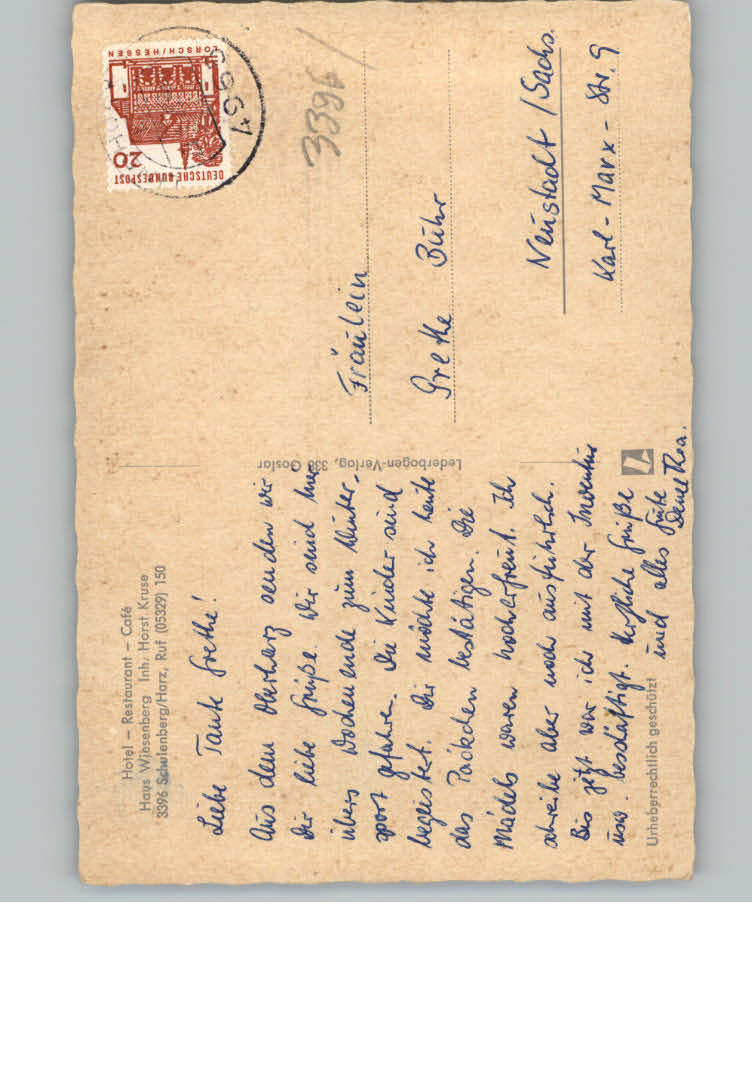 Hotel – Restaurant – Café
Haus Wiesenberg Inh. Horst Kruse
3396 Schulenberg/Harz, Ruf (05329) 150
Liebe Tante Grethe!
Aus dem Oberharz senden wir
Dir liebe Grüße. Wir sind hier
übers Wochenende zum Winter-
sport gefahren. Die Kinder sind
begeistert. Dir möchte ich heute
das Päckchen bestätigen. Die
Mädels waren hocherfreut. Ich
schreibe aber noch ausführlich.
Bis jetzt war ich mit der Inventur
usw. beschäftigt. Herzliche Grüße
und alles Gute
Deine
Urheberrechtlich geschützt
Lederbogen-Verlag, 338 Goslar
DEUTSCHE BUNDESPOST
20
LORSCH/HESSEN
3396
Fräulein
Grethe Buhr
Neustadt / Sachs.
Karl-Marx-Str. 9